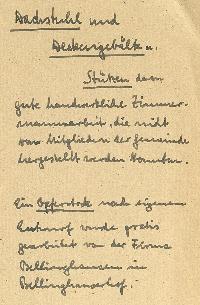 Dachstuhl und
Deckengebälk u.
Stützen dazu
gute handwerkliche Zimmer-
mannsarbeit, die nicht
von Mitgliedern der Gemeinde
hergestellt werden konnten.
Ein Opferstock nach eigenem
Entwurf wurde gratis
gearbeitet von der Firma
Bellinghausen in
Bellinghauserhof.